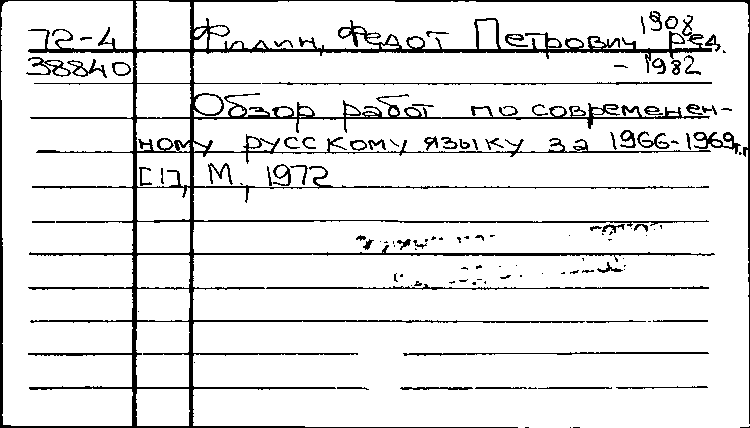 72-4 Филин, Федот Петрович, ред. 1908
38840 - 1982
Обзор работ по современен-
ному русскому языку за 1966-1969г.г
[1], М., 1972